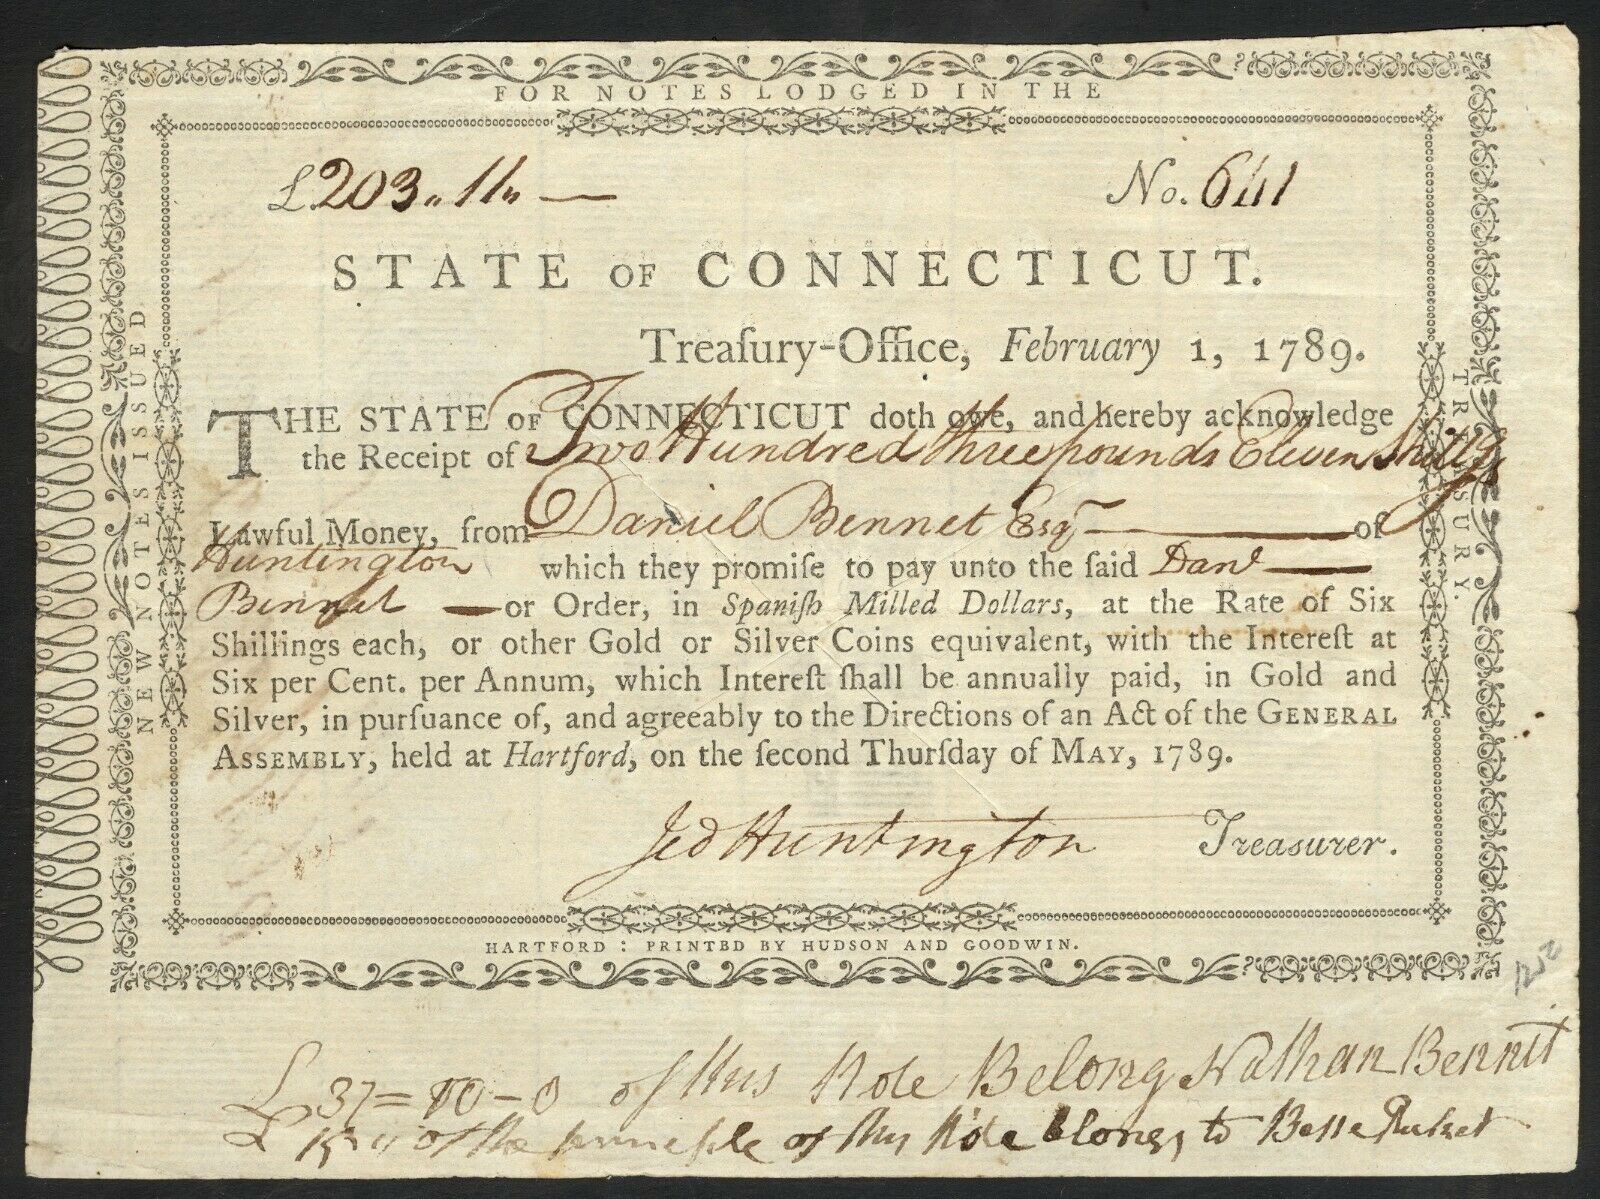 FOR NOTES LODGED IN THE
£.203 „ 11 „ —
No. 641
STATE OF CONNECTICUT.
Treaſury-Office, February 1, 1789.
THE STATE OF CONNECTICUT doth owe, and hereby acknowledge
the Receipt of Two Hundred three pounds Eleven Shillgs
Lawful Money, from Daniel Bennet Esqr — of
Huntington which they promiſe to pay unto the ſaid Danl —
Bennet — or Order, in Spaniſh Milled Dollars, at the Rate of Six
Shillings each, or other Gold or Silver Coins equivalent, with the Intereſt at
Six per Cent. per Annum, which Intereſt ſhall be annually paid, in Gold and
Silver, in purſuance of, and agreeably to the Directions of an Act of the GENERAL
ASSEMBLY, held at Hartford, on the ſecond Thurſday of MAY, 1789.
Jed Huntington Treasurer.
HARTFORD: PRINTBD BY HUDSON AND GOODWIN.
NEW NOTES ISSUED
TREASURY.
£ 37=10-0 of this Note Belong Nathan Bennit
£ of the principle of this Note belongs to